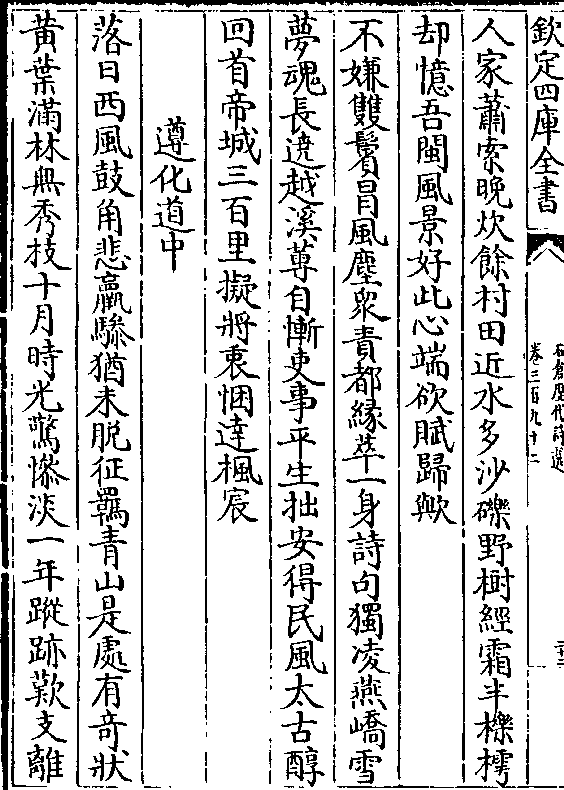 欽定四庫全書
石倉歷代詩選
卷三百九十二
人家蕭索晚炊餘村田近水多沙礫野樹經霜半櫟樗
却憶吾閩風景好此心端欲賦歸歟
不嫌雙鬢冒風塵衆責都緣萃一身詩句獨凌燕嶠雪
夢魂長遶越溪蓴自慚吏事平生拙安得民風太古醇
回首帝城三百里擬將衷悃達楓宸
遵化道中
落日西風鼓角悲羸驂猶未脫征羈青山是處有奇狀
黃葉滿林無秀枝十月時光驚慘淡一年蹤跡歎支離